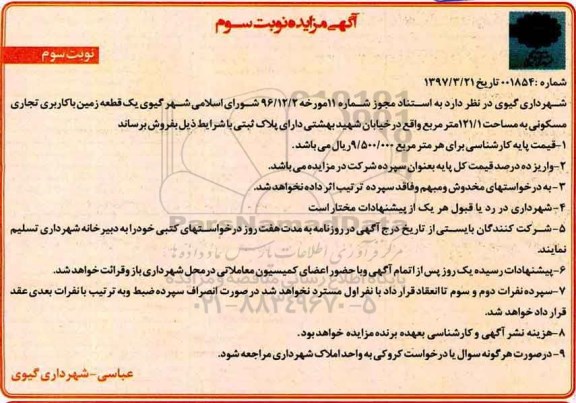 آگهی مزایده نوبت سوم
نوبت سوم
شماره :۰۰۱۸۵۴ تاریخ ۱۳۹۷/۳/۲۱
شهرداری گیوی در نظر دارد به استناد مجوز شماره ۱۱مورخه ۹۶/۱۲/۲ شورای اسلامی شهر گیوی یک قطعه زمین باکاربری تجاری
مسکونی به مساحت ۱۲۱/۱متر مربع واقع در خیابان شهید بهشتی دارای پلاک ثبتی با شرایط ذیل بفروش برساند
۱-قیمت پایه کارشناسی برای هر متر مربع ۹/۵۰۰/۰۰۰ریال می باشد.
۲-واریز ده درصد قیمت کل پایه بعنوان سپرده شرکت در مزایده می باشد.
۳- به درخواستهای مخدوش ومبهم وفاقد سپرده ترتیب اثر داده نخواهد شد.
۴-شهرداری در رد یا قبول هر یک از پیشنهادات مختار است
۵-شرکت کنندگان بایستی از تاریخ درج آگهی در روزنامه به مدت هفت روز درخواستهای کتبی خود را به دبیر خانه شهرداری تسلیم
نمایند.
۶-پیشنهادات رسیده یک روز پس از اتمام آگهی وبا حضور اعضای کمیسیون معاملاتی در محل شهرداری باز وقرائت خواهد شد.
۷-سپرده نفرات دوم و سوم تا انعقاد قرار داد با نفر اول مسترد نخواهد شد در صورت انصراف سپرده ضبط وبه ترتیب با نفرات بعدی عقد
قرار داد خواهد شد.
۸-هزینه نشر آگهی و کارشناسی بعهده برنده مزایده خواهد بود.
۹-درصورت هرگونه سوال یا درخواست کروکی به واحد املاک شهرداری مراجعه شود.
عباسی-شهرداری گیوی
ParsNamadData
۰۲۱-۸۸۳۴۹۶۷۰-۵